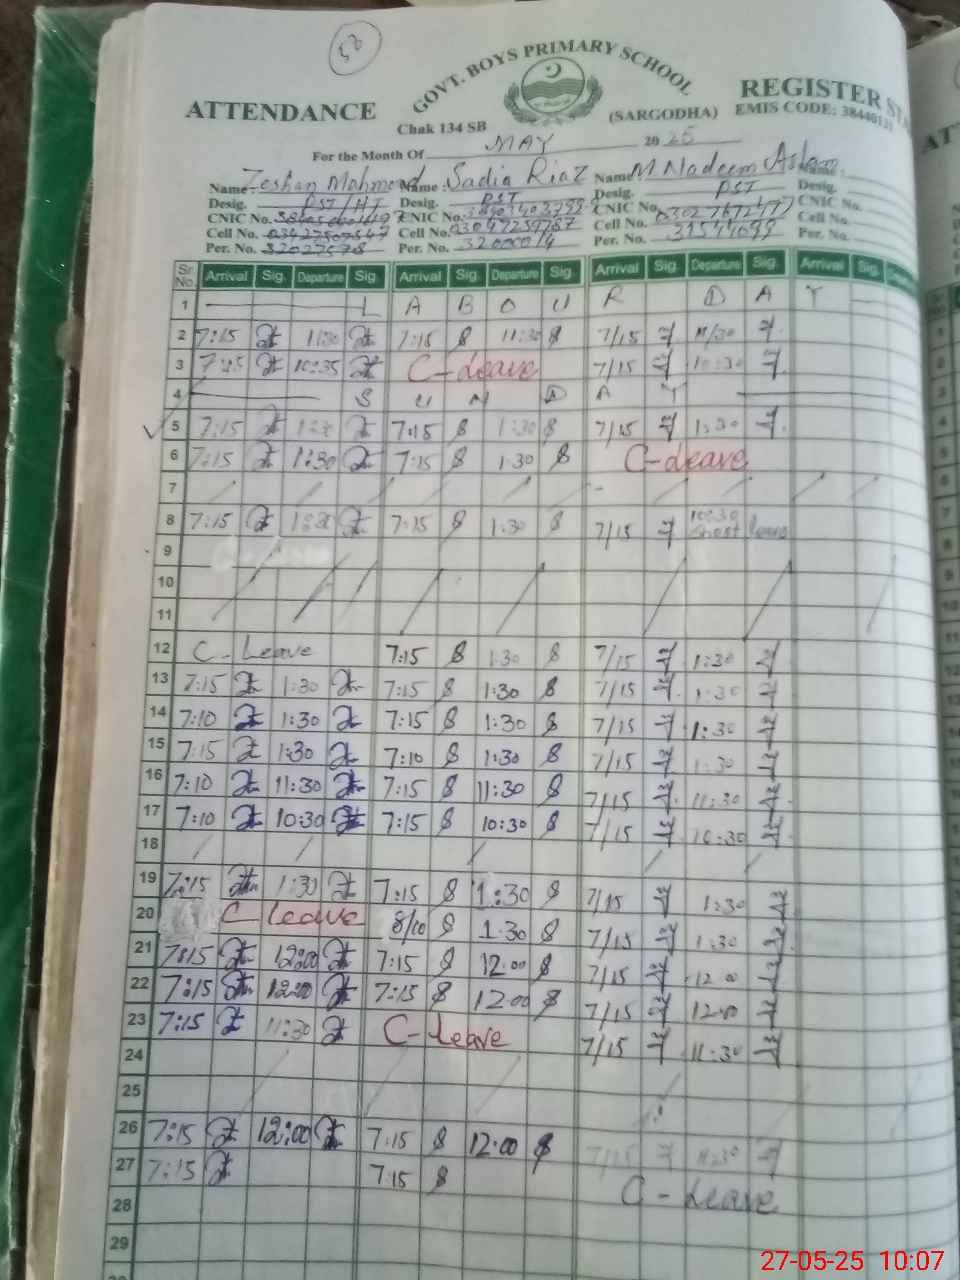 52
GOVT. BOYS PRIMARY SCHOOL
ATTENDANCE REGISTER
Chak 134 SB (SARGODHA) EMIS CODE:
For the Month Of MAY 2025
Name Zeshan Mahmood Name : Sadia Riaz Name M Nadeem Aslam Name :
Desig. PST/HT Desig. PST Desig. PST Desig.
CNIC No. CNIC No. CNIC No. CNIC No.
Cell No. Cell No. Cell No. Cell No.
Per. No. Per. No. Per. No. Per. No.
Sr. No. Arrival Sig. Departure Sig. Arrival Sig. Departure Sig. Arrival Sig. Departure Sig. Arrival Sig.
1 L A B O U R D A Y
2 7:15 11:30 7:15 11:30 7/15 11/30
3 7:15 10:35 C-Leave 7/15 10:30
4 S U N D A Y
5 7:15 1:30 7:15 1:30 7/15 1:30
6 7:15 1:30 7:15 1:30 C-Leave
7
8 7:15 1:30 7:15 1:30 7/15 10:30 Short leave
9
10
11
12 C-Leave 7:15 1:30 7/15 1:30
13 7:15 1:30 7:15 1:30 7/15 1:30
14 7:10 1:30 7:15 1:30 7/15 1:30
15 7:15 1:30 7:10 1:30 7/15 1:30
16 7:10 11:30 7:15 11:30 7/15 11:30
17 7:10 10:30 7:15 10:30 7/15 10:30
18
19 7:15 1:30 7:15 1:30 7/15 1:30
20 C-Leave 8/10 1:30 7/15 1:30
21 7:15 12:00 7:15 12:00 7/15 12:00
22 7:15 12:00 7:15 12:00 7/15 12:00
23 7:15 11:30 C-Leave 7/15 11:30
24
25
26 7:15 12:00 7:15 12:00 7/15
27 7:15 7:15 C-Leave
28
29
27-05-25 10:07